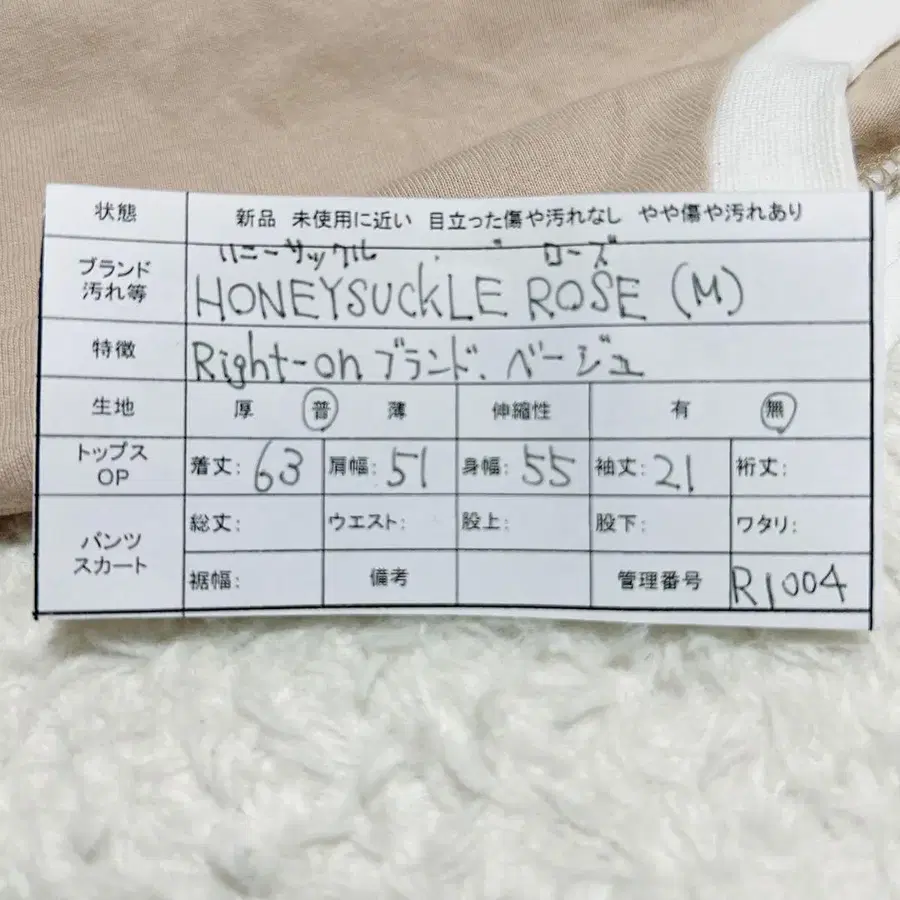 状態 新品 未使用に近い 目立った傷や汚れなし やや傷や汚れあり
ハニーサックル ・ ローズ
ブランド
汚れ等 HONEYSUCKLE ROSE (M)
特徴 Right-on ブランド、ベージュ
生地 厚 普 薄 伸縮性 有 無
トップス
OP 着丈: 63 肩幅: 51 身幅: 55 袖丈: 21 裄丈:
パンツ
スカート 総丈: ウエスト: 股上: 股下: ワタリ:
裾幅: 備考 管理番号 R1004